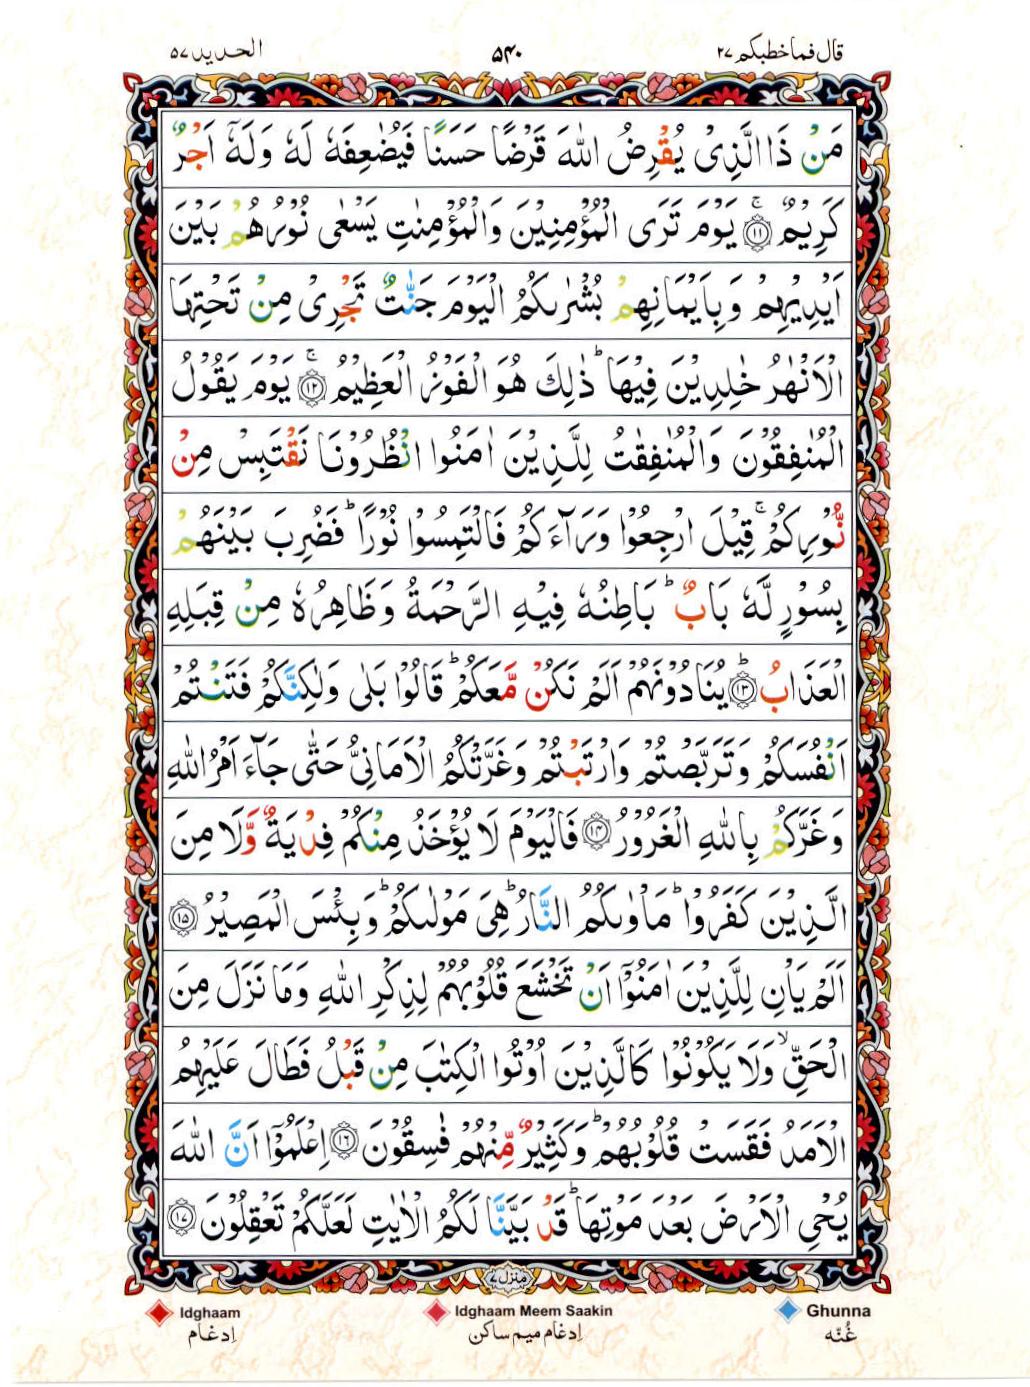 قال فما خطبكم ٢٧
۵۴۰
الحديد ٥٧
مَنۡ ذَا الَّذِىۡ يُقۡرِضُ اللّٰهَ قَرۡضًا حَسَنًا فَيُضٰعِفَهٗ لَهٗ وَلَهٗۤ اَجۡرٌ
كَرِيۡمٌ ۚ‏ ﴿۱۱﴾ يَوۡمَ تَرَى الۡمُؤۡمِنِيۡنَ وَالۡمُؤۡمِنٰتِ يَسۡعٰى نُوۡرُهُمۡ بَيۡنَ
اَيۡدِيۡهِمۡ وَبِاَيۡمَانِهِمۡ بُشۡرٰٮكُمُ الۡيَوۡمَ جَنّٰتٌ تَجۡرِىۡ مِنۡ تَحۡتِهَا
الۡاَنۡهٰرُ خٰلِدِيۡنَ فِيۡهَا ؕ ذٰلِكَ هُوَ الۡفَوۡزُ الۡعَظِيۡمُ ۚ‏ ﴿۱۲﴾ يَوۡمَ يَقُوۡلُ
الۡمُنٰفِقُوۡنَ وَالۡمُنٰفِقٰتُ لِلَّذِيۡنَ اٰمَنُوا انْظُرُوۡنَا نَقۡتَبِسۡ مِنۡ
نُّوۡرِكُمۡ ۚ قِيۡلَ ارۡجِعُوۡا وَرَآءَكُمۡ فَالۡتَمِسُوۡا نُوۡرًا ؕ فَضُرِبَ بَيۡنَهُمۡ
بِسُوۡرٍ لَّهٗ بَابٌ ؕ بَاطِنُهٗ فِيۡهِ الرَّحۡمَةُ وَظَاهِرُهٗ مِنۡ قِبَلِهِ
الۡعَذَابُ ؕ‏ ﴿۱۳﴾ يُنَادُوۡنَهُمۡ اَلَمۡ نَكُنۡ مَّعَكُمۡ ؕ قَالُوۡا بَلٰى وَلٰكِنَّكُمۡ فَتَنۡتُمۡ
اَنۡفُسَكُمۡ وَ تَرَبَّصۡتُمۡ وَارۡتَبۡتُمۡ وَغَرَّتۡكُمُ الۡاَمَانِىُّ حَتّٰى جَآءَ اَمۡرُ اللّٰهِ
وَغَرَّكُمۡ بِاللّٰهِ الۡغَرُوۡرُ‏ ﴿۱۴﴾ فَالۡيَوۡمَ لَا يُؤۡخَذُ مِنۡكُمۡ فِدۡيَةٌ وَّلَا مِنَ
الَّذِيۡنَ كَفَرُوۡا ؕ مَاۡوٰٮكُمُ النَّارُ ؕ هِىَ مَوۡلٰٮكُمۡ ؕ وَبِئۡسَ الۡمَصِيۡرُ‏ ﴿۱۵﴾
اَلَمۡ يَاۡنِ لِلَّذِيۡنَ اٰمَنُوۡۤا اَنۡ تَخۡشَعَ قُلُوۡبُهُمۡ لِذِكۡرِ اللّٰهِ وَمَا نَزَلَ مِنَ
الۡحَقِّ ۙ وَلَا يَكُوۡنُوۡا كَالَّذِيۡنَ اُوۡتُوا الۡكِتٰبَ مِنۡ قَبۡلُ فَطَالَ عَلَيۡهِمُ
الۡاَمَدُ فَقَسَتۡ قُلُوۡبُهُمۡ ؕ وَكَثِيۡرٌ مِّنۡهُمۡ فٰسِقُوۡنَ‏ ﴿۱۶﴾ اِعۡلَمُوۡۤا اَنَّ اللّٰهَ
يُحۡىِ الۡاَرۡضَ بَعۡدَ مَوۡتِهَا ؕ قَدۡ بَيَّنَّا لَكُمُ الۡاٰيٰتِ لَعَلَّكُمۡ تَعۡقِلُوۡنَ‏ ﴿۱۷﴾
منزل ۷
Idghaam
Idghaam Meem Saakin
Ghunna
اِدغام
اِدغام میم ساکن
غُنّه